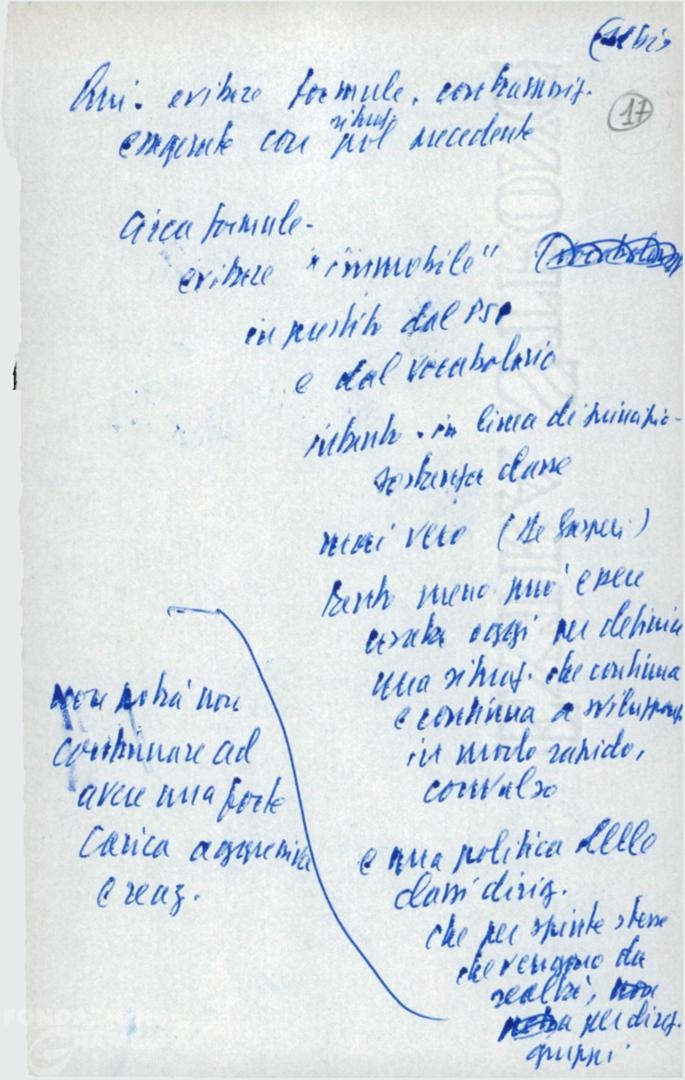 (bis
17
Qui. evitare formule. contrappos.
esagerate con situaz. precedente
Circa formule.
evitare "immobile"
in prestito dal PSI
e dal vocabolario
intanto. in linea di principio.
sostanza classe
mai vero (De Gasperi)
tanto meno può essere
usata oggi per definire
una situaz. che continua
e continua a svilupparsi
in modo rapido,
convulso
e una politica delle
classi dirig.
che per spinte stesse
che vengono da
realtà, per dirig.
gruppi
non potrà non
continuare ad
avere una forte
carica aggressiva
e reaz.
FONDAZIONE
GRAMSCI